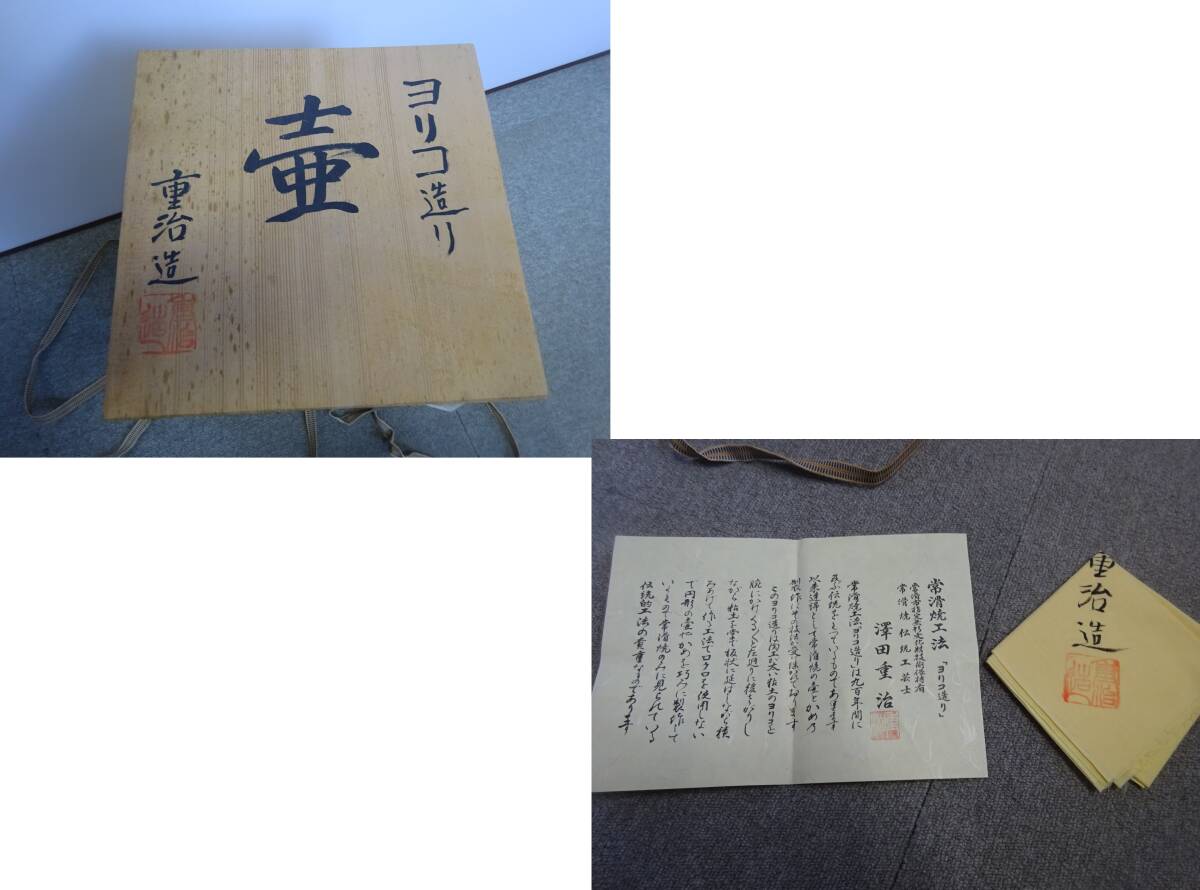 ヨリコ造り
壷
重治造
常滑焼工法「ヨリコ造り」
常滑市指定無形文化財技術保持者
常滑焼伝統工芸士
澤田重治
常滑焼工法「ヨリコ造り」は九百年間に
及ぶ伝統をもっているものであります
以来連綿として常滑焼の壷とかめの
製作にその技法が受け継がれております
このヨリコ造りは陶工が太い粘土のヨリコを
腕にかけぐるぐると左廻りに後ずさりし
ながら粘土を掌で板状に延ばしながら積
みあげて作る工法でロクロを使用しない
で円形の壷やかめを巧みに製作して
いくもので常滑焼のみに見られている
伝統的工法の貴重なものであります
重治造